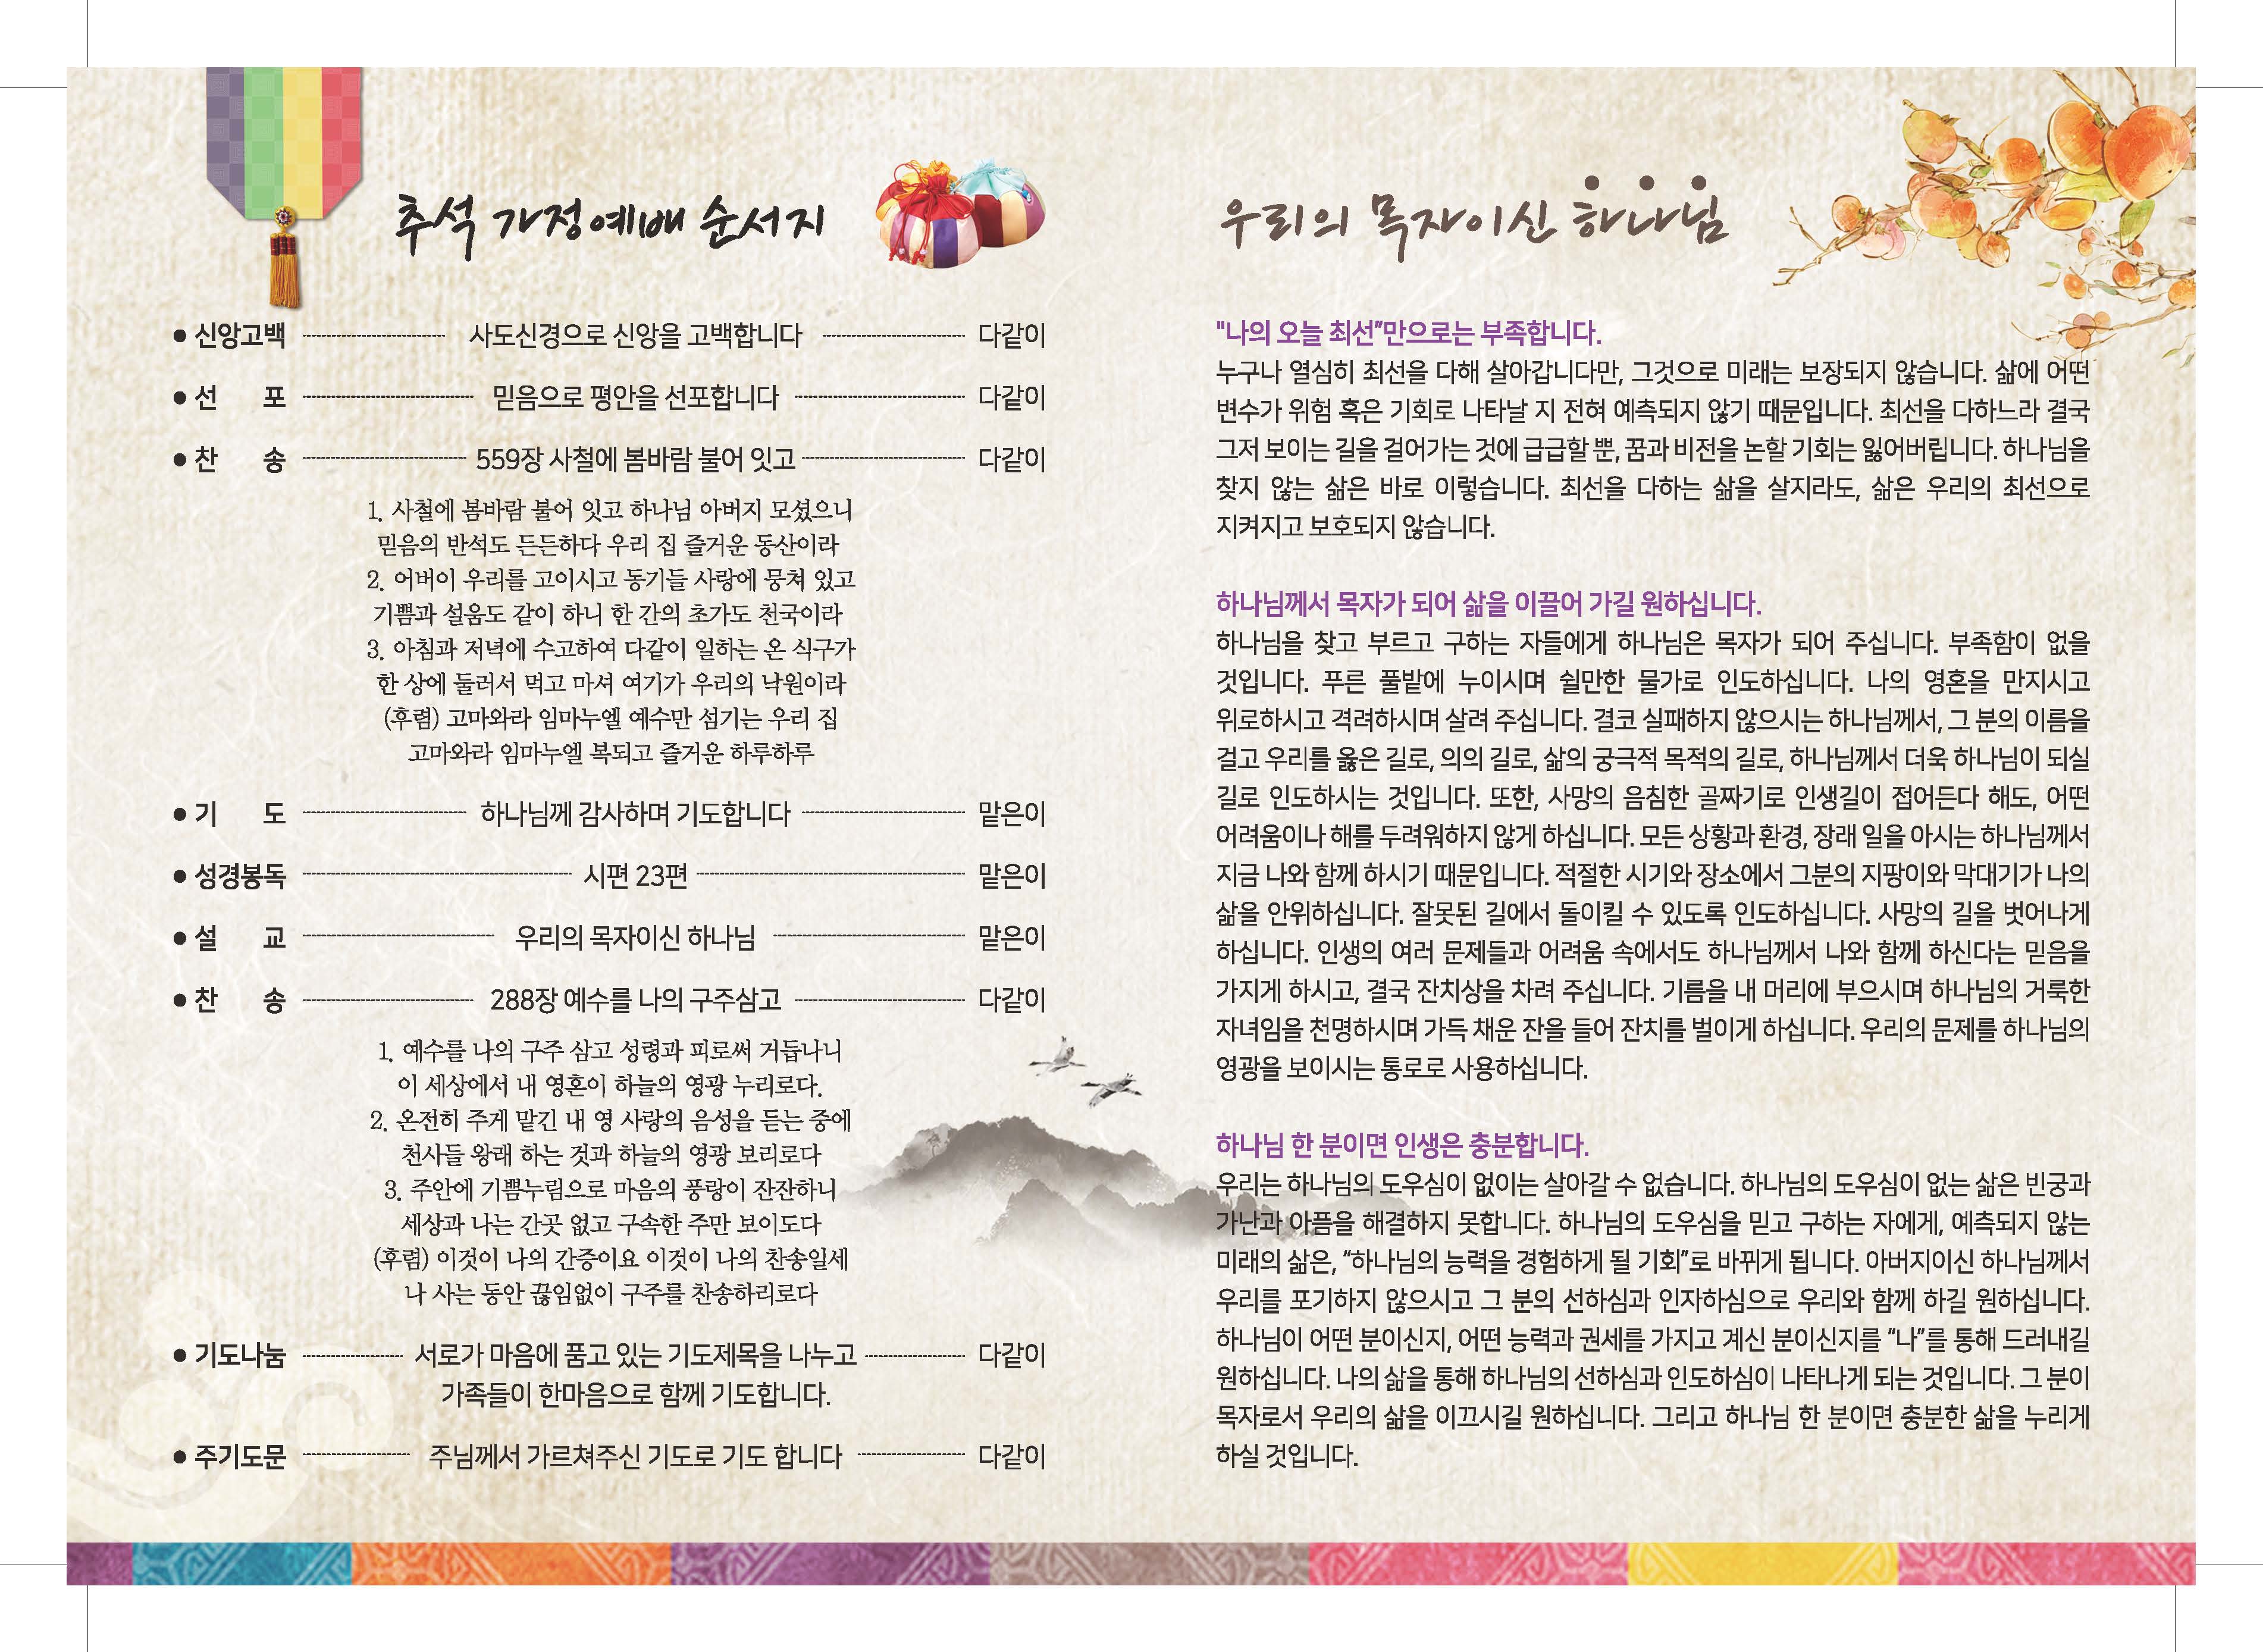 추석 가정예배 순서지
● 신앙고백 사도신경으로 신앙을 고백합니다 다같이
● 선 포 믿음으로 평안을 선포합니다 다같이
● 찬 송 559장 사철에 봄바람 불어 잇고 다같이
1. 사철에 봄바람 불어 잇고 하나님 아버지 모셨으니
믿음의 반석도 든든하다 우리 집 즐거운 동산이라
2. 어버이 우리를 고이시고 동기들 사랑에 뭉쳐 있고
기쁨과 설움도 같이 하니 한 간의 초가도 천국이라
3. 아침과 저녁에 수고하여 다같이 일하는 온 식구가
한 상에 둘러서 먹고 마셔 여기가 우리의 낙원이라
(후렴) 고마와라 임마누엘 예수만 섬기는 우리 집
고마와라 임마누엘 복되고 즐거운 하루하루
● 기 도 하나님께 감사하며 기도합니다 맡은이
● 성경봉독 시편 23편 맡은이
● 설 교 우리의 목자이신 하나님 맡은이
● 찬 송 288장 예수를 나의 구주삼고 다같이
1. 예수를 나의 구주 삼고 성령과 피로써 거듭나니
이 세상에서 내 영혼이 하늘의 영광 누리로다.
2. 온전히 주게 맡긴 내 영 사랑의 음성을 듣는 중에
천사들 왕래 하는 것과 하늘의 영광 보리로다
3. 주안에 기쁨누림으로 마음의 풍랑이 잔잔하니
세상과 나는 간곳 없고 구속한 주만 보이도다
(후렴) 이것이 나의 간증이요 이것이 나의 찬송일세
나 사는 동안 끊임없이 구주를 찬송하리로다
● 기도나눔 서로가 마음에 품고 있는 기도제목을 나누고 다같이
가족들이 한마음으로 함께 기도합니다.
● 주기도문 주님께서 가르쳐주신 기도로 기도 합니다 다같이
우리의 목자이신 하나님
"나의 오늘 최선”만으로는 부족합니다.
누구나 열심히 최선을 다해 살아갑니다만, 그것으로 미래는 보장되지 않습니다. 삶에 어떤
변수가 위험 혹은 기회로 나타날 지 전혀 예측되지 않기 때문입니다. 최선을 다하느라 결국
그저 보이는 길을 걸어가는 것에 급급할 뿐, 꿈과 비전을 논할 기회는 잃어버립니다. 하나님을
찾지 않는 삶은 바로 이렇습니다. 최선을 다하는 삶을 살지라도, 삶은 우리의 최선으로
지켜지고 보호되지 않습니다.
하나님께서 목자가 되어 삶을 이끌어 가길 원하십니다.
하나님을 찾고 부르고 구하는 자들에게 하나님은 목자가 되어 주십니다. 부족함이 없을
것입니다. 푸른 풀밭에 누이시며 쉴만한 물가로 인도하십니다. 나의 영혼을 만지시고
위로하시고 격려하시며 살려 주십니다. 결코 실패하지 않으시는 하나님께서, 그 분의 이름을
걸고 우리를 옳은 길로, 의의 길로, 삶의 궁극적 목적의 길로, 하나님께서 더욱 하나님이 되실
길로 인도하시는 것입니다. 또한, 사망의 음침한 골짜기로 인생길이 접어든다 해도, 어떤
어려움이나 해를 두려워하지 않게 하십니다. 모든 상황과 환경, 장래 일을 아시는 하나님께서
지금 나와 함께 하시기 때문입니다. 적절한 시기와 장소에서 그분의 지팡이와 막대기가 나의
삶을 안위하십니다. 잘못된 길에서 돌이킬 수 있도록 인도하십니다. 사망의 길을 벗어나게
하십니다. 인생의 여러 문제들과 어려움 속에서도 하나님께서 나와 함께 하신다는 믿음을
가지게 하시고, 결국 잔치상을 차려 주십니다. 기름을 내 머리에 부으시며 하나님의 거룩한
자녀임을 천명하시며 가득 채운 잔을 들어 잔치를 벌이게 하십니다. 우리의 문제를 하나님의
영광을 보이시는 통로로 사용하십니다.
하나님 한 분이면 인생은 충분합니다.
우리는 하나님의 도우심이 없이는 살아갈 수 없습니다. 하나님의 도우심이 없는 삶은 빈궁과
가난과 아픔을 해결하지 못합니다. 하나님의 도우심을 믿고 구하는 자에게, 예측되지 않는
미래의 삶은, “하나님의 능력을 경험하게 될 기회”로 바뀌게 됩니다. 아버지이신 하나님께서
우리를 포기하지 않으시고 그 분의 선하심과 인자하심으로 우리와 함께 하길 원하십니다.
하나님이 어떤 분이신지, 어떤 능력과 권세를 가지고 계신 분이신지를 “나”를 통해 드러내길
원하십니다. 나의 삶을 통해 하나님의 선하심과 인도하심이 나타나게 되는 것입니다. 그 분이
목자로서 우리의 삶을 이끄시길 원하십니다. 그리고 하나님 한 분이면 충분한 삶을 누리게
하실 것입니다.